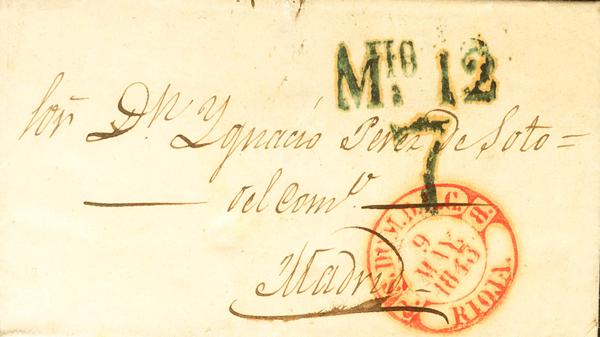 Mᴴᴵᴼ. 12
7
Sor. Dn. Ygnacio Perez de Soto =
del Como.
Madrid
9
MAY
1843
RIOJA.